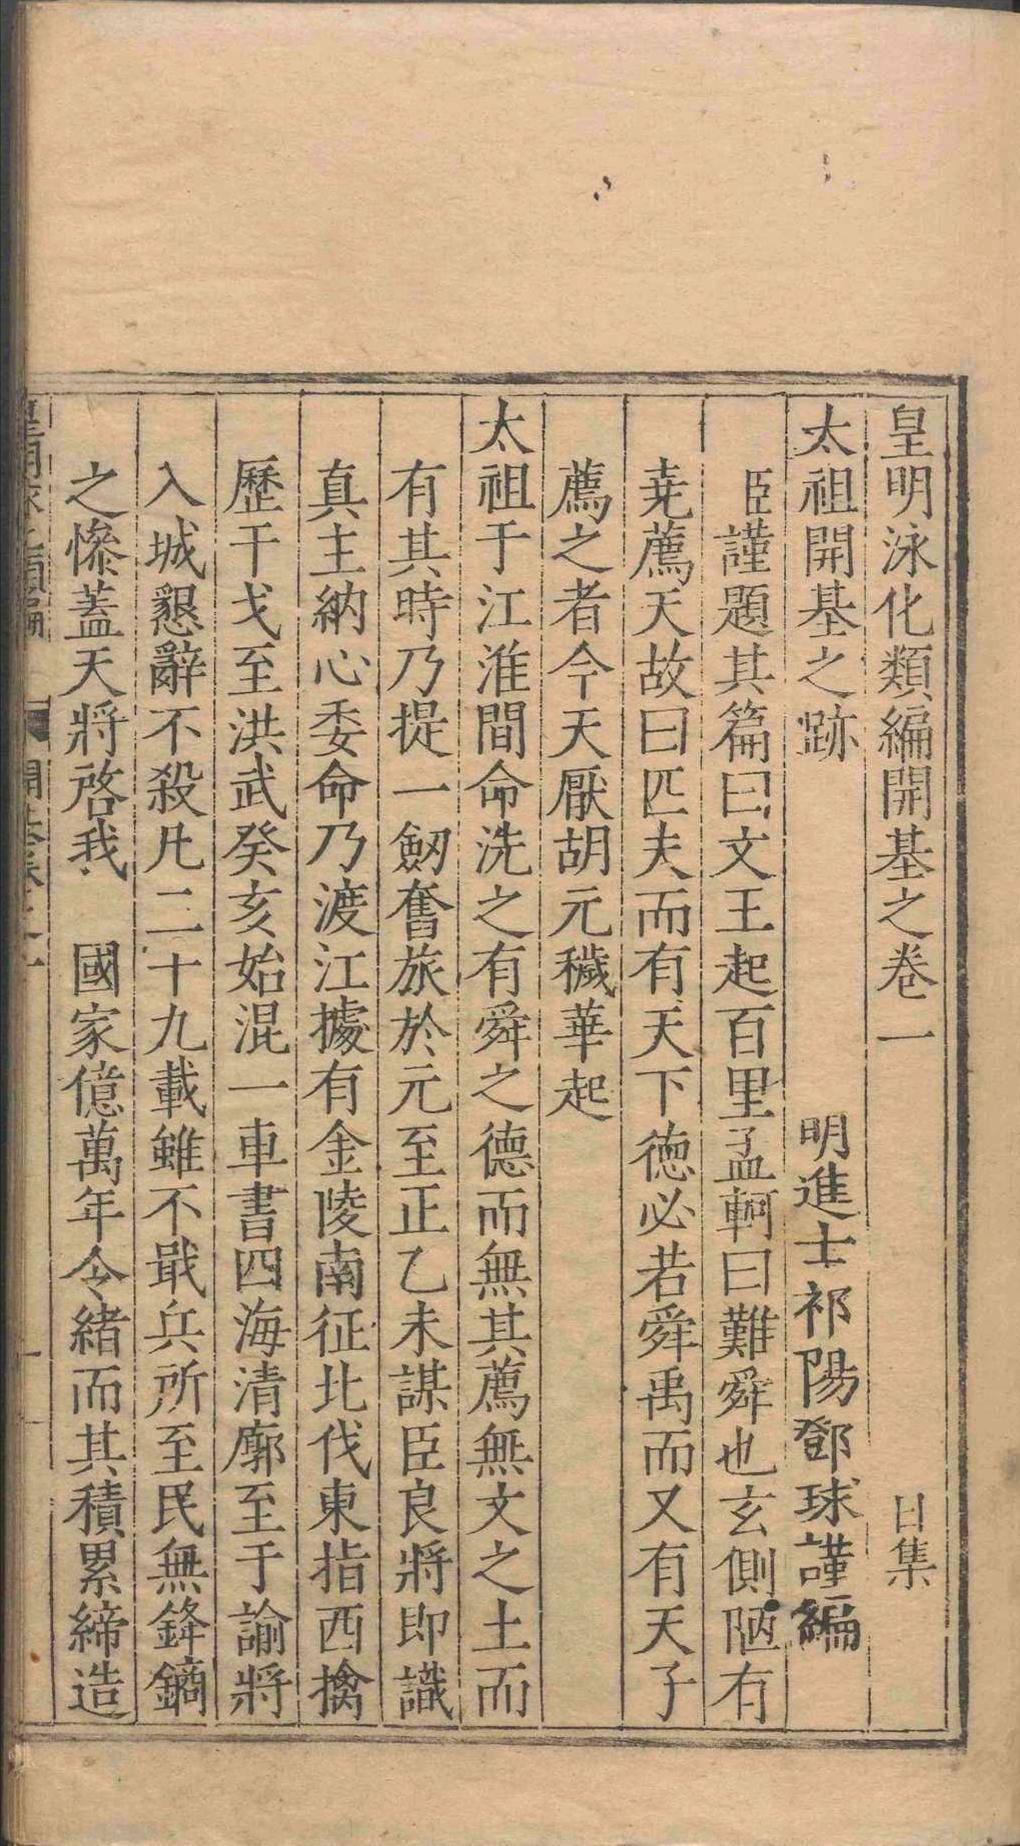 皇明泳化類編開基之卷一　日集
太祖開基之跡　明進士祁陽鄧球謹編
臣謹題其篇曰文王起百里孟軻曰難舜也玄側陋有
尭薦天故曰匹夫而有天下德必若舜禹而又有天子
薦之者今天厭胡元穢華起
太祖于江淮間命洗之有舜之德而無其薦無文之土而
有其時乃提一劒奮旅於元至正乙未謀臣良將即識
真主納心委命乃渡江據有金陵南征北伐東指西擒
歷干戈至洪武癸亥始混一車書四海清廓至于諭將
入城懇辭不殺凡二十九載雖不戢兵所至民無鋒鏑
之慘蓋天將啓我　國家億萬年令緒而其積累締造
皇明泳化類編　開基卷之一　一